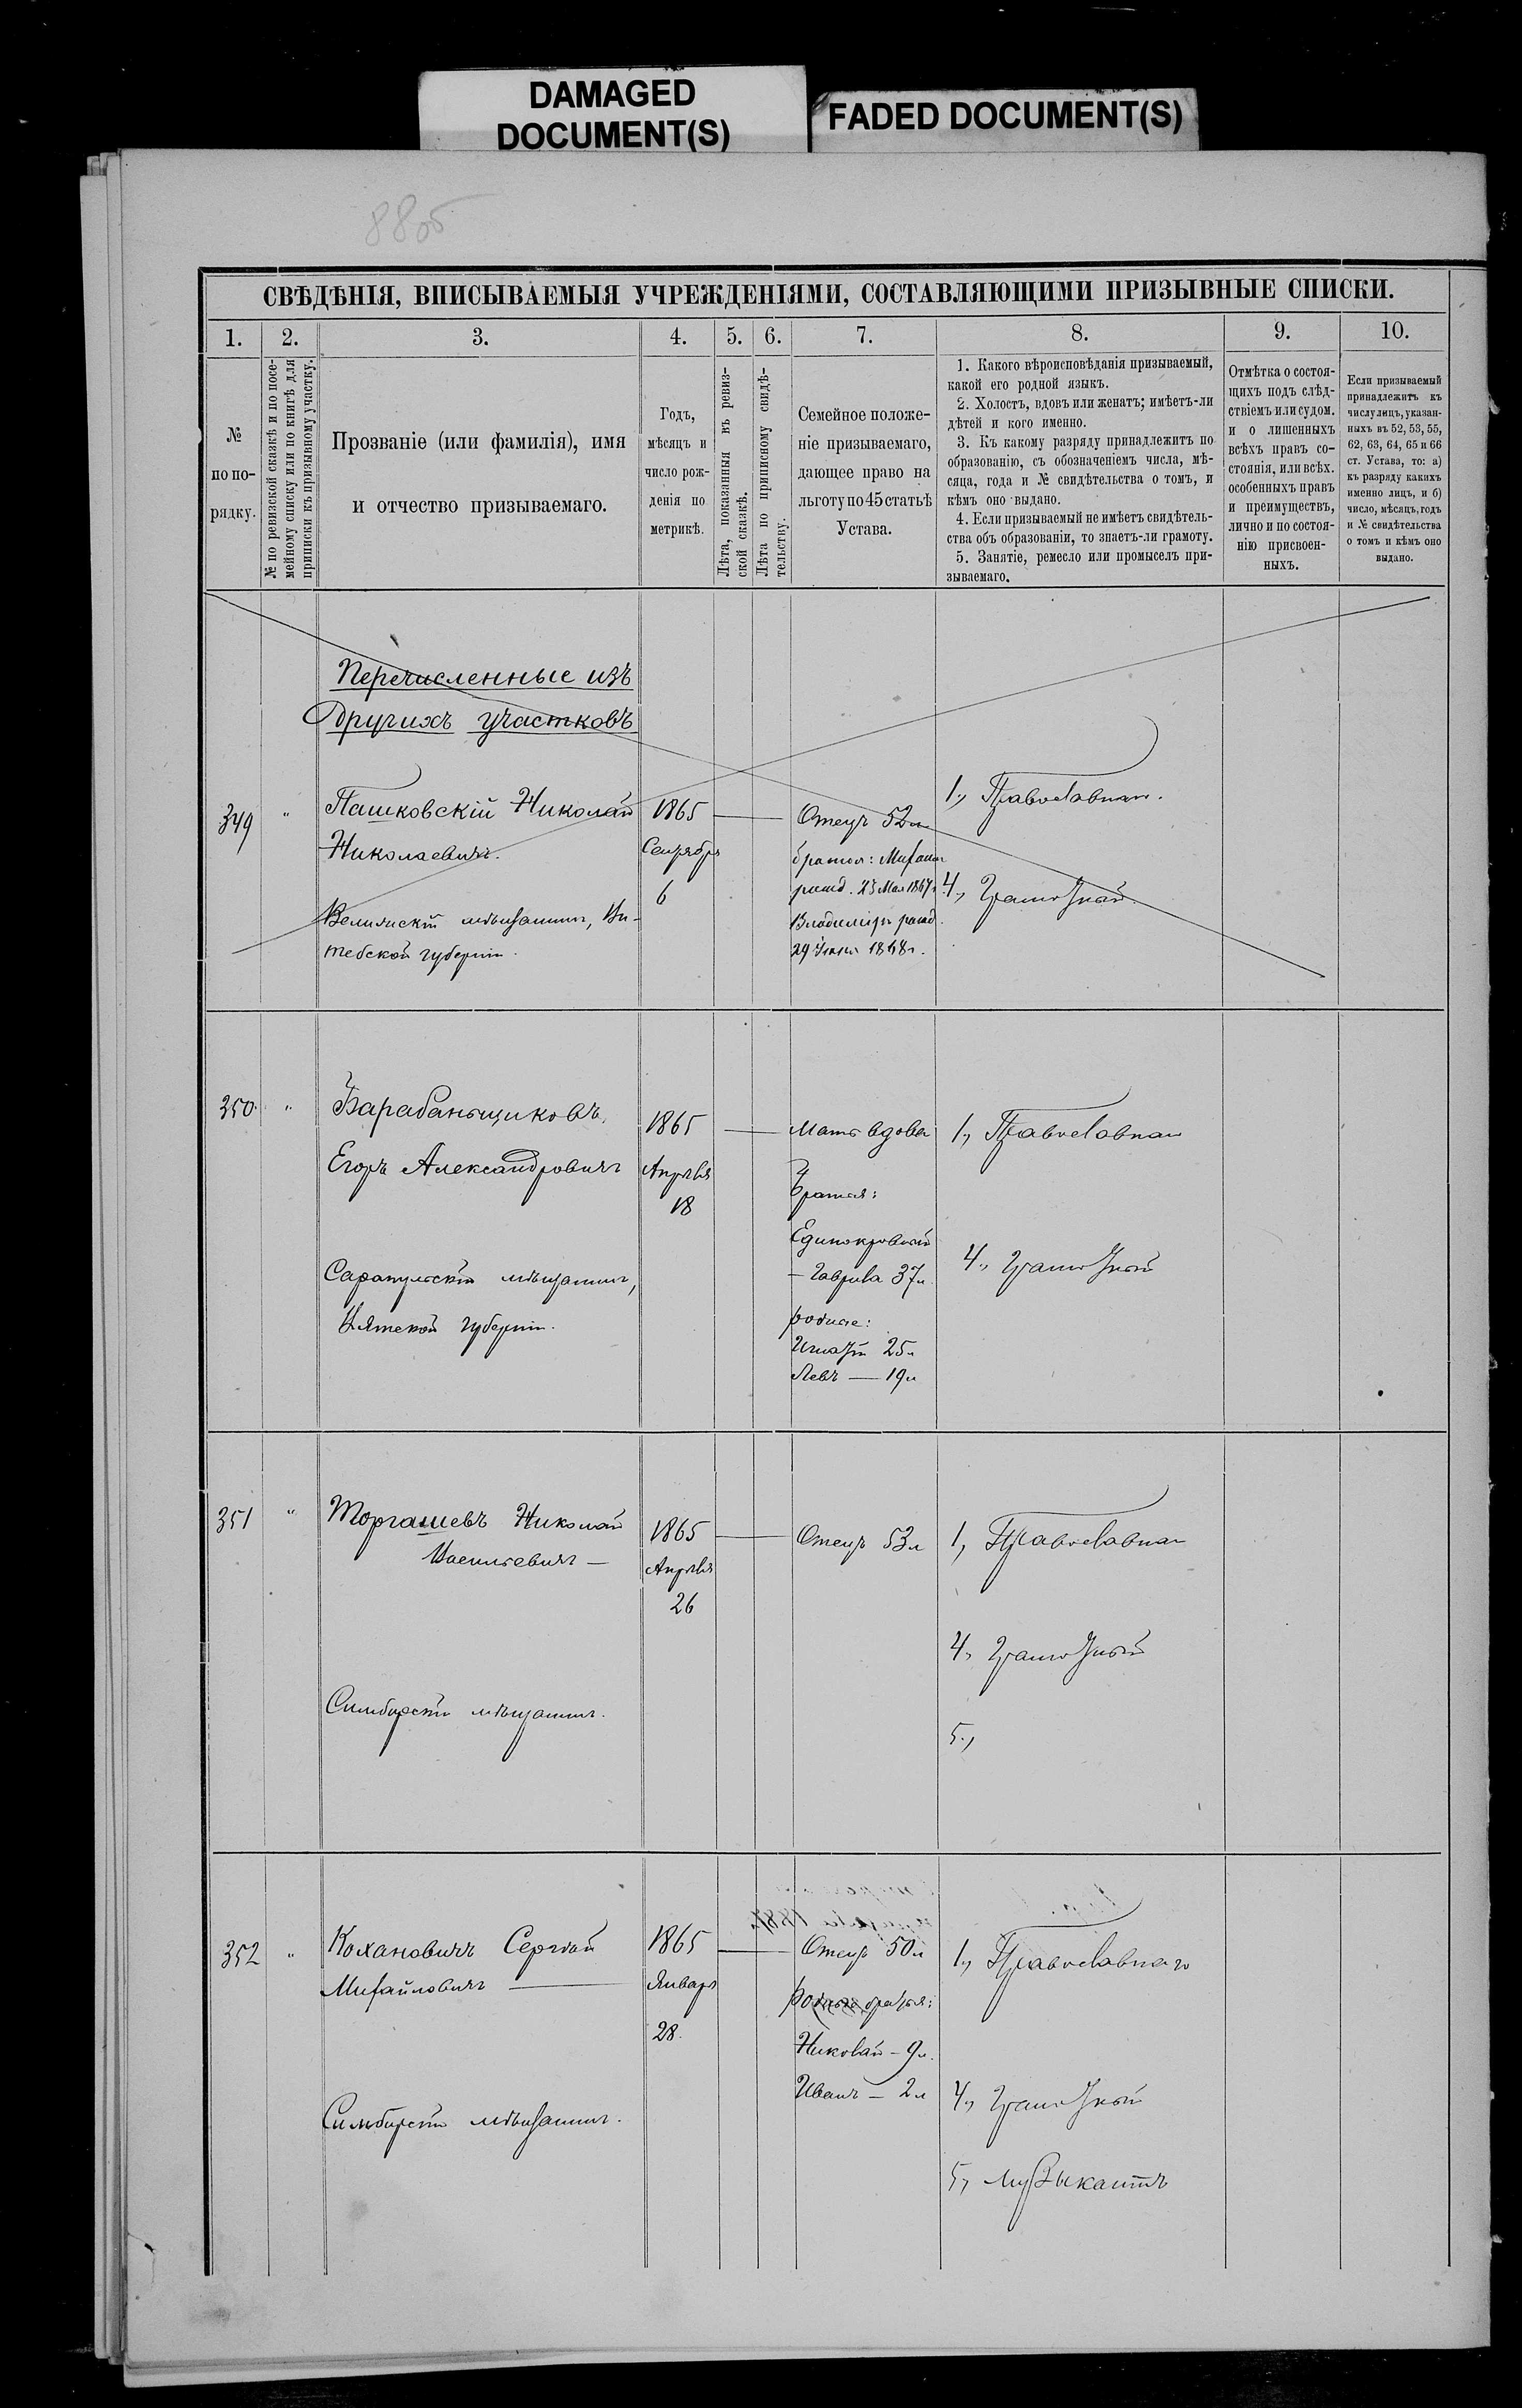 DAMAGED
DOCUMENT(S)
FADED DOCUMENT(S)
88об
СВѢДѢНІЯ, ВПИСЫВАЕМЫЯ УЧРЕЖДЕНІЯМИ, СОСТАВЛЯЮЩИМИ ПРИЗЫВНЫЕ СПИСКИ.
1. 2. 3. 4. 5. 6. 7. 8. 9. 10.
№
по по-
рядку.
№ по ревизской сказкѣ и по посе-
мейному списку или по книгѣ для
приписки къ призывному участку.
Прозваніе (или фамилія), имя
и отчество призываемаго.
Годъ,
мѣсяцъ и
число рож-
денія по
метрикѣ.
Лѣта, показанныя въ ревиз-
ской сказкѣ.
Лѣта по приписному свидѣ-
тельству.
Семейное положе-
ніе призываемаго,
дающее право на
льготу по 45 статьѣ
Устава.
1. Какого вѣроисповѣданія призываемый,
какой его родной языкъ.
2. Холостъ, вдовъ или женатъ; имѣетъ-ли
дѣтей и кого именно.
3. Къ какому разряду принадлежитъ по
образованію, съ обозначеніемъ числа, мѣ-
сяца, года и № свидѣтельства о томъ, и
кѣмъ оно выдано.
4. Если призываемый не имѣетъ свидѣтель-
ства объ образованіи, то знаетъ-ли грамоту.
5. Занятіе, ремесло или промыселъ при-
зываемаго.
Отмѣтка о состоя-
щихъ подъ слѣд-
ствіемъ или судом.
и о лишенныхъ
всѣхъ правъ со-
стоянія, или всѣх.
особенныхъ правъ
и преимуществъ,
лично и по состоя-
нію присвоен-
ныхъ.
Если призываемый
принадлежитъ къ
числу лицъ, указан-
ныхъ въ 52, 53, 55,
62, 63, 64, 65 и 66
ст. Устава, то: а)
къ разряду какихъ
именно лицъ, и б)
число, мѣсяцъ, годъ
и № свидѣтельства
о томъ и кѣмъ оно
выдано.
Перечисленные изъ
другихъ участковъ
349 "
Пашковскій Николай
Николаевичъ.
Велижскій мѣщанинъ, Ви-
тебской губерніи.
1865
Сентября
6
Отецъ 52 л
братья: Михаилъ
рожд. 23 Мая 1867 г.
Владиміръ рожд.
29 Іюня 1868 г.
1., Православнаго.
4., Грамотный.
350 "
Барабаньщиковъ
Егоръ Александровичъ
Сарапульскій мѣщанинъ,
Вятской губерніи.
1865
Апрѣля
18
Мать вдова
братья:
Единокровный
— Гаврила 37 л.
родные:
Игнатій 25 л
Левъ — 19 л
1., Православнаго
4., Грамотный
351 "
Торгашевъ Николай
Васильевичъ —
Симбирскій мѣщанинъ.
1865
Апрѣля
26
Отецъ 53 л
1, Православнаго
4, Грамотный
5.,
352 "
Кохановичъ Сергѣй
Михайловичъ —
Симбирскій мѣщанинъ.
1865
Января
28.
Отецъ 50 л
родные братья:
Николай — 9 л.
Иванъ — 2 л
1., Православнаго
4., Грамотный
5, музыкантъ